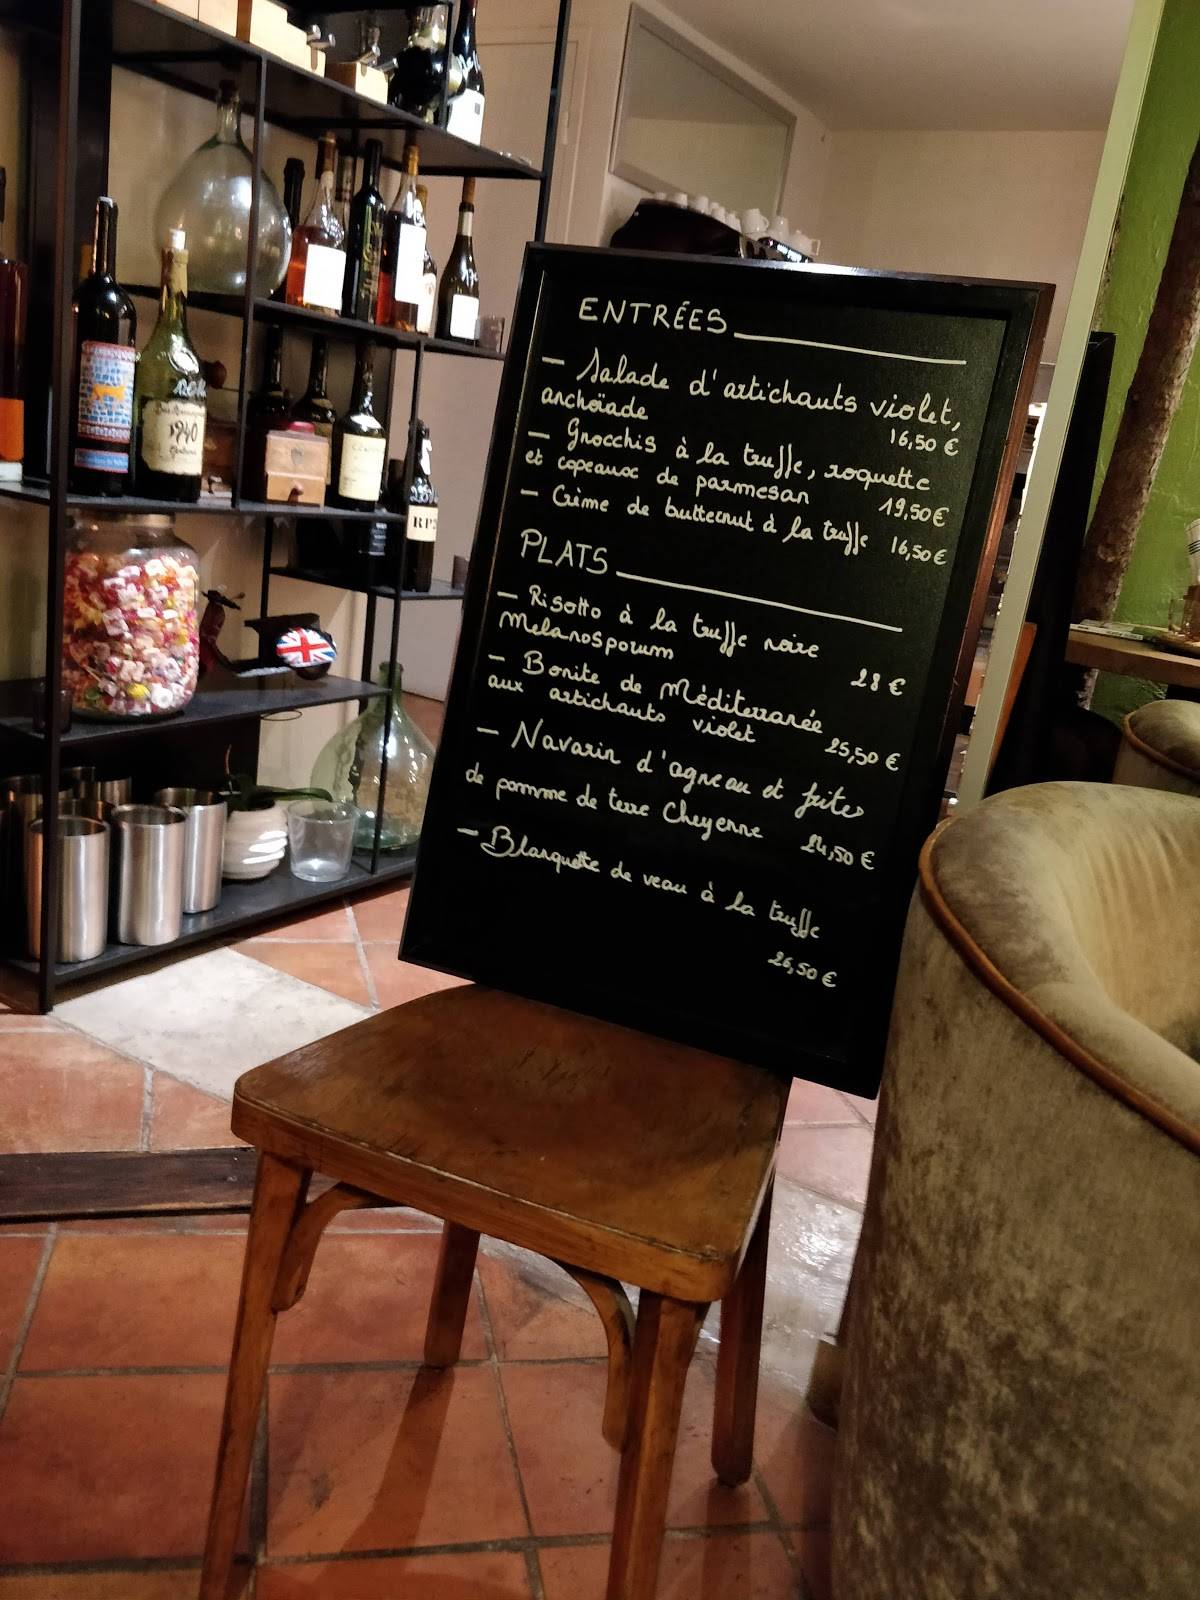 ENTRÉES
- Salade d'artichauts violet,
anchoïade
16,50 €
- Gnocchis à la truffe, roquette
et copeaux de parmesan 19,50 €
- Crème de butternut à la truffe 16,50 €
PLATS
- Risotto à la truffe noire
Melanosporum
28 €
- Bonite de Méditerranée
aux artichauts violet 25,50 €
- Navarin d'agneau et frites
de pomme de terre Cheyenne 24,50 €
- Blanquette de veau à la truffe
26,50 €
1940